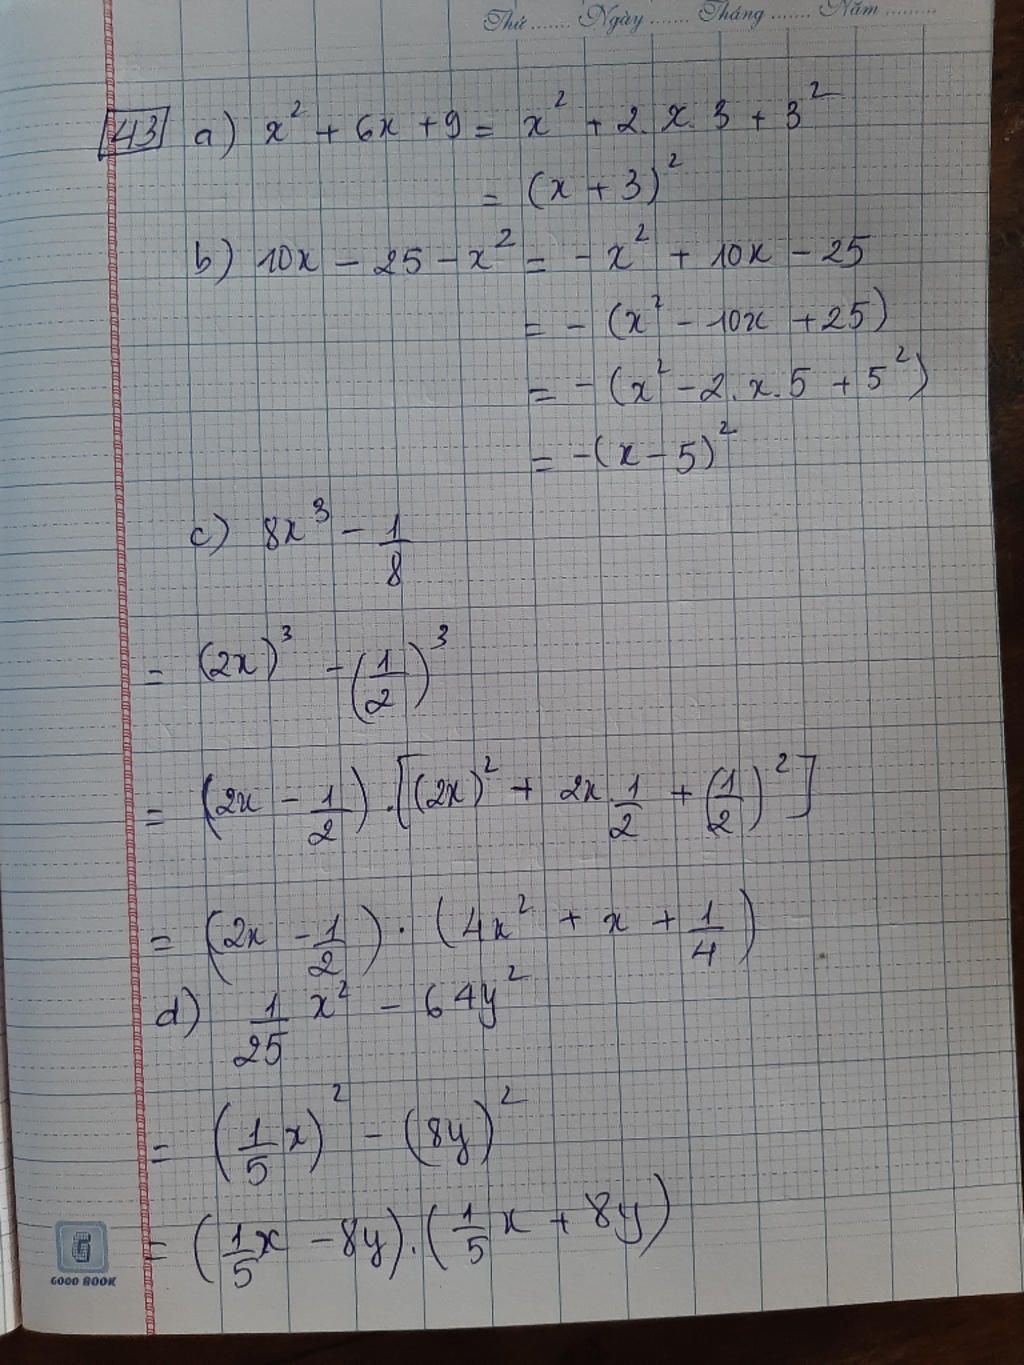 Thứ ....... Ngày ....... Tháng ....... Năm .........
43 a) x² + 6x + 9 = x² + 2. x. 3 + 3²
= (x + 3)²
b) 10x - 25 - x² = - x² + 10x - 25
= - (x² - 10x + 25)
= - (x² - 2. x. 5 + 5²)
= -(x - 5)²
c) 8x³ - 1/8
= (2x)³ - (1/2)³
= (2x - 1/2) . [(2x)² + 2x. 1/2 + (1/2)²]
= (2x - 1/2) . (4x² + x + 1/4)
d) 1/25 x² - 64y²
= (1/5 x)² - (8y)²
= (1/5 x - 8y) . (1/5 x + 8y)
G
GOOD BOOK